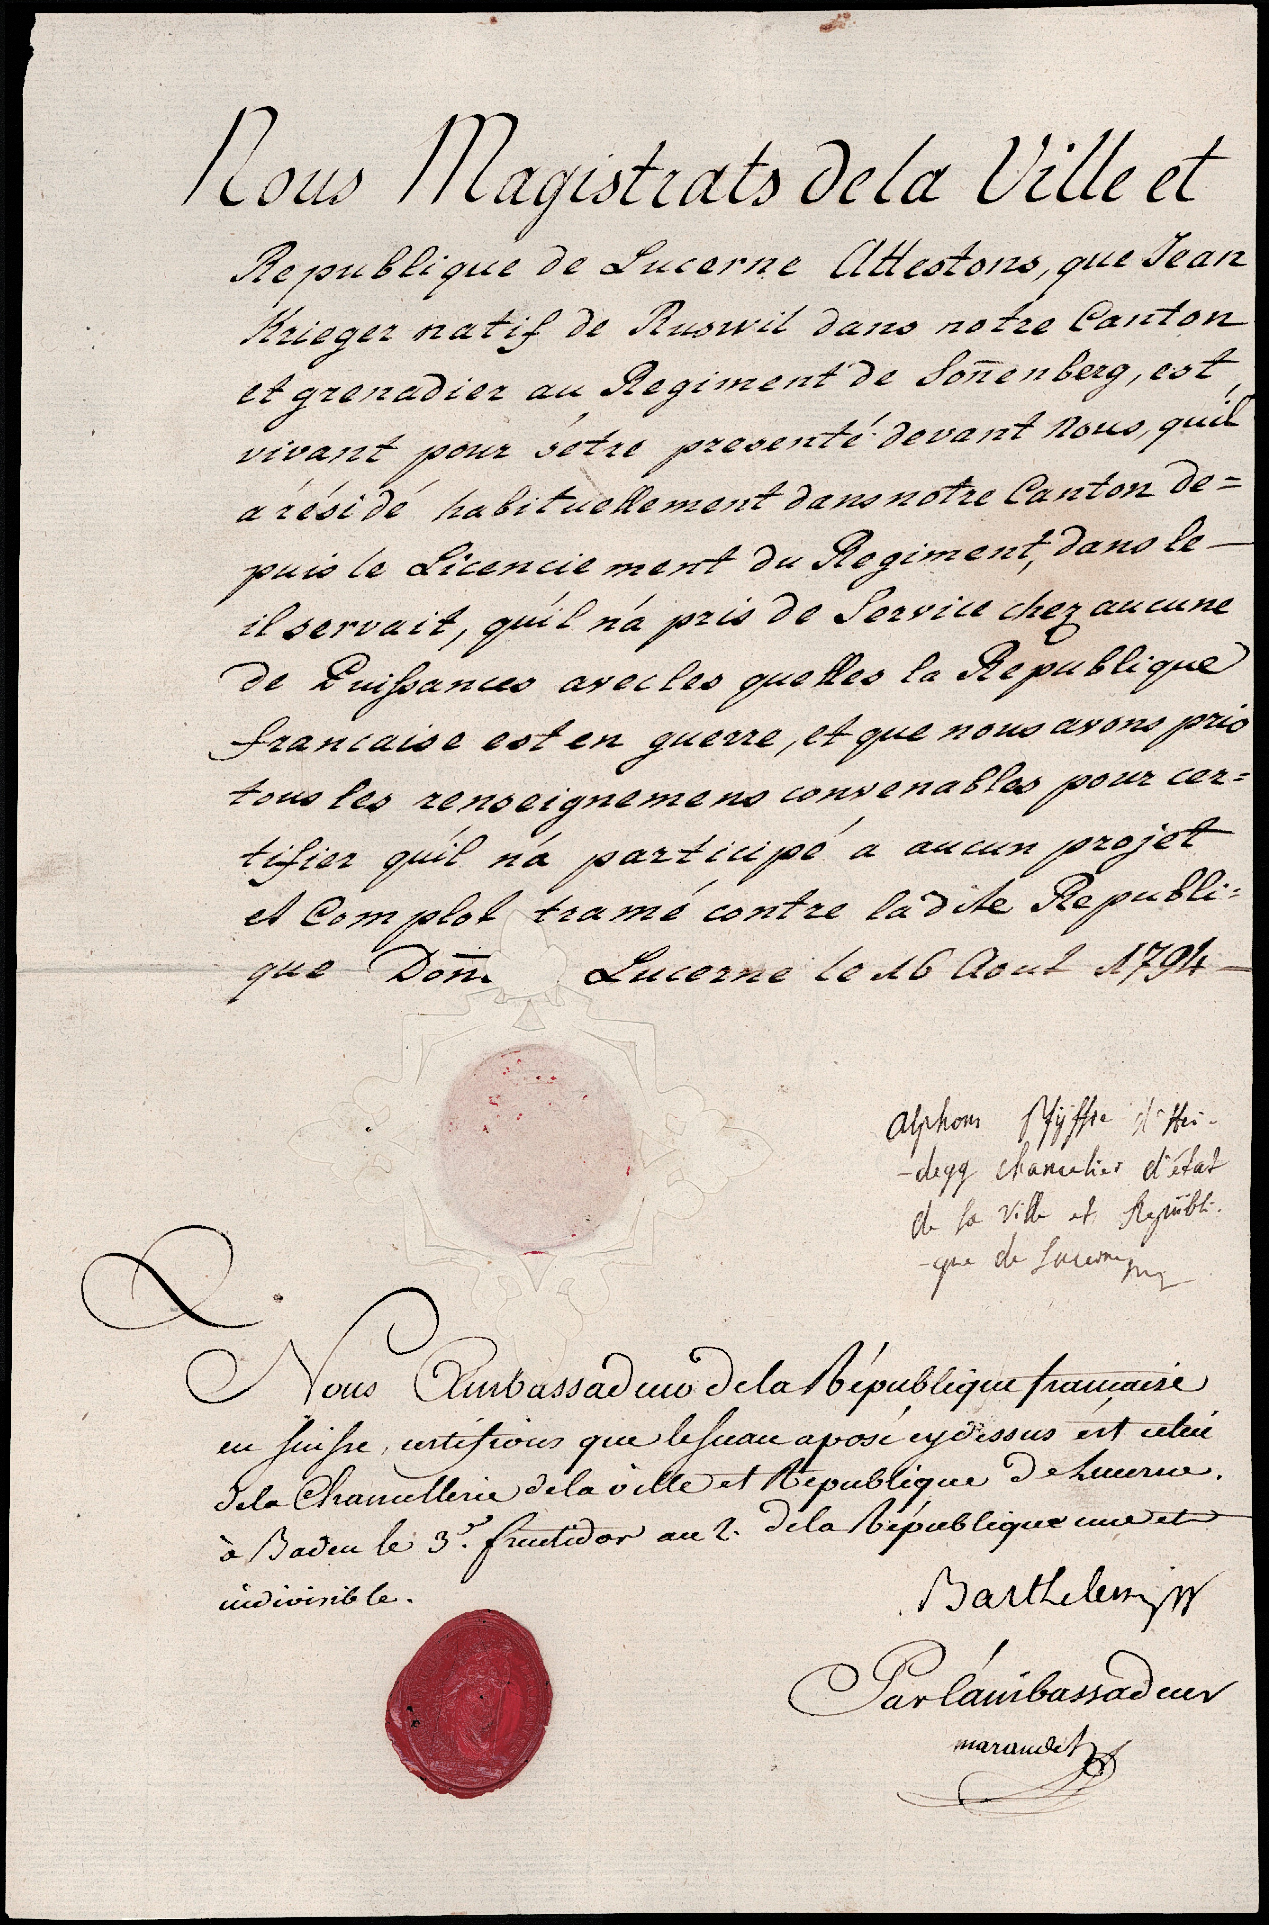 Nous Magistrats de la Ville et
Republique de Lucerne Attestons, que Jean
Krieger natif de Ruswil dans notre Canton
et grenadier au Regiment de Son̄enberg, est
vivant pour s'étre presenté devant Nous, qu'il
a résidé habituellement dans notre Canton de=
puis le Licenciement du Regiment, dans le —
il servait, qu'il n'a pris de Service chez aucune
de Puissances avec les quelles la Republique
francaise est en guerre, et que nous avons pris
tous les renseignemens convenables pour cer=
tifier qu'il n'a participé a aucun projet
et Complot tramé contre la dite Republi=
que Don̄e Lucerne le 16 Aout 1794 —
Alphons Pfÿffer d'Hei-
-degg chancelier d'état
de la Ville et Republi-
-que de Lucerne
Nous Ambassadeur de la République française
en Suisse, certifions que le sceau aposé cy dessus est celui
de la Chancellerie de la ville et République de Lucerne.
à Baden le 3.e fructidor an 2. de la République une et
indivisible.
Barthelemy
Par l'ambassadeur
marandet